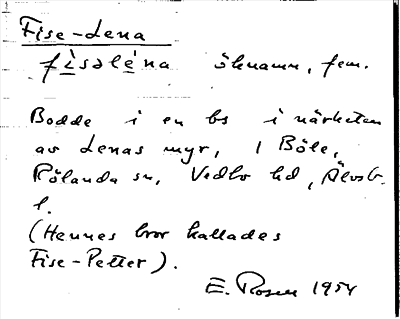 Fise-Lena
fìsəlèna öknamn, fem.
Bodde i en bs i närheten
av Lenas myr, i Böle,
Rölanda sn, Vedbo hd, Älvsb.
l.
(Hennes bror kallades
Fise-Petter).
E. Rosen 1954